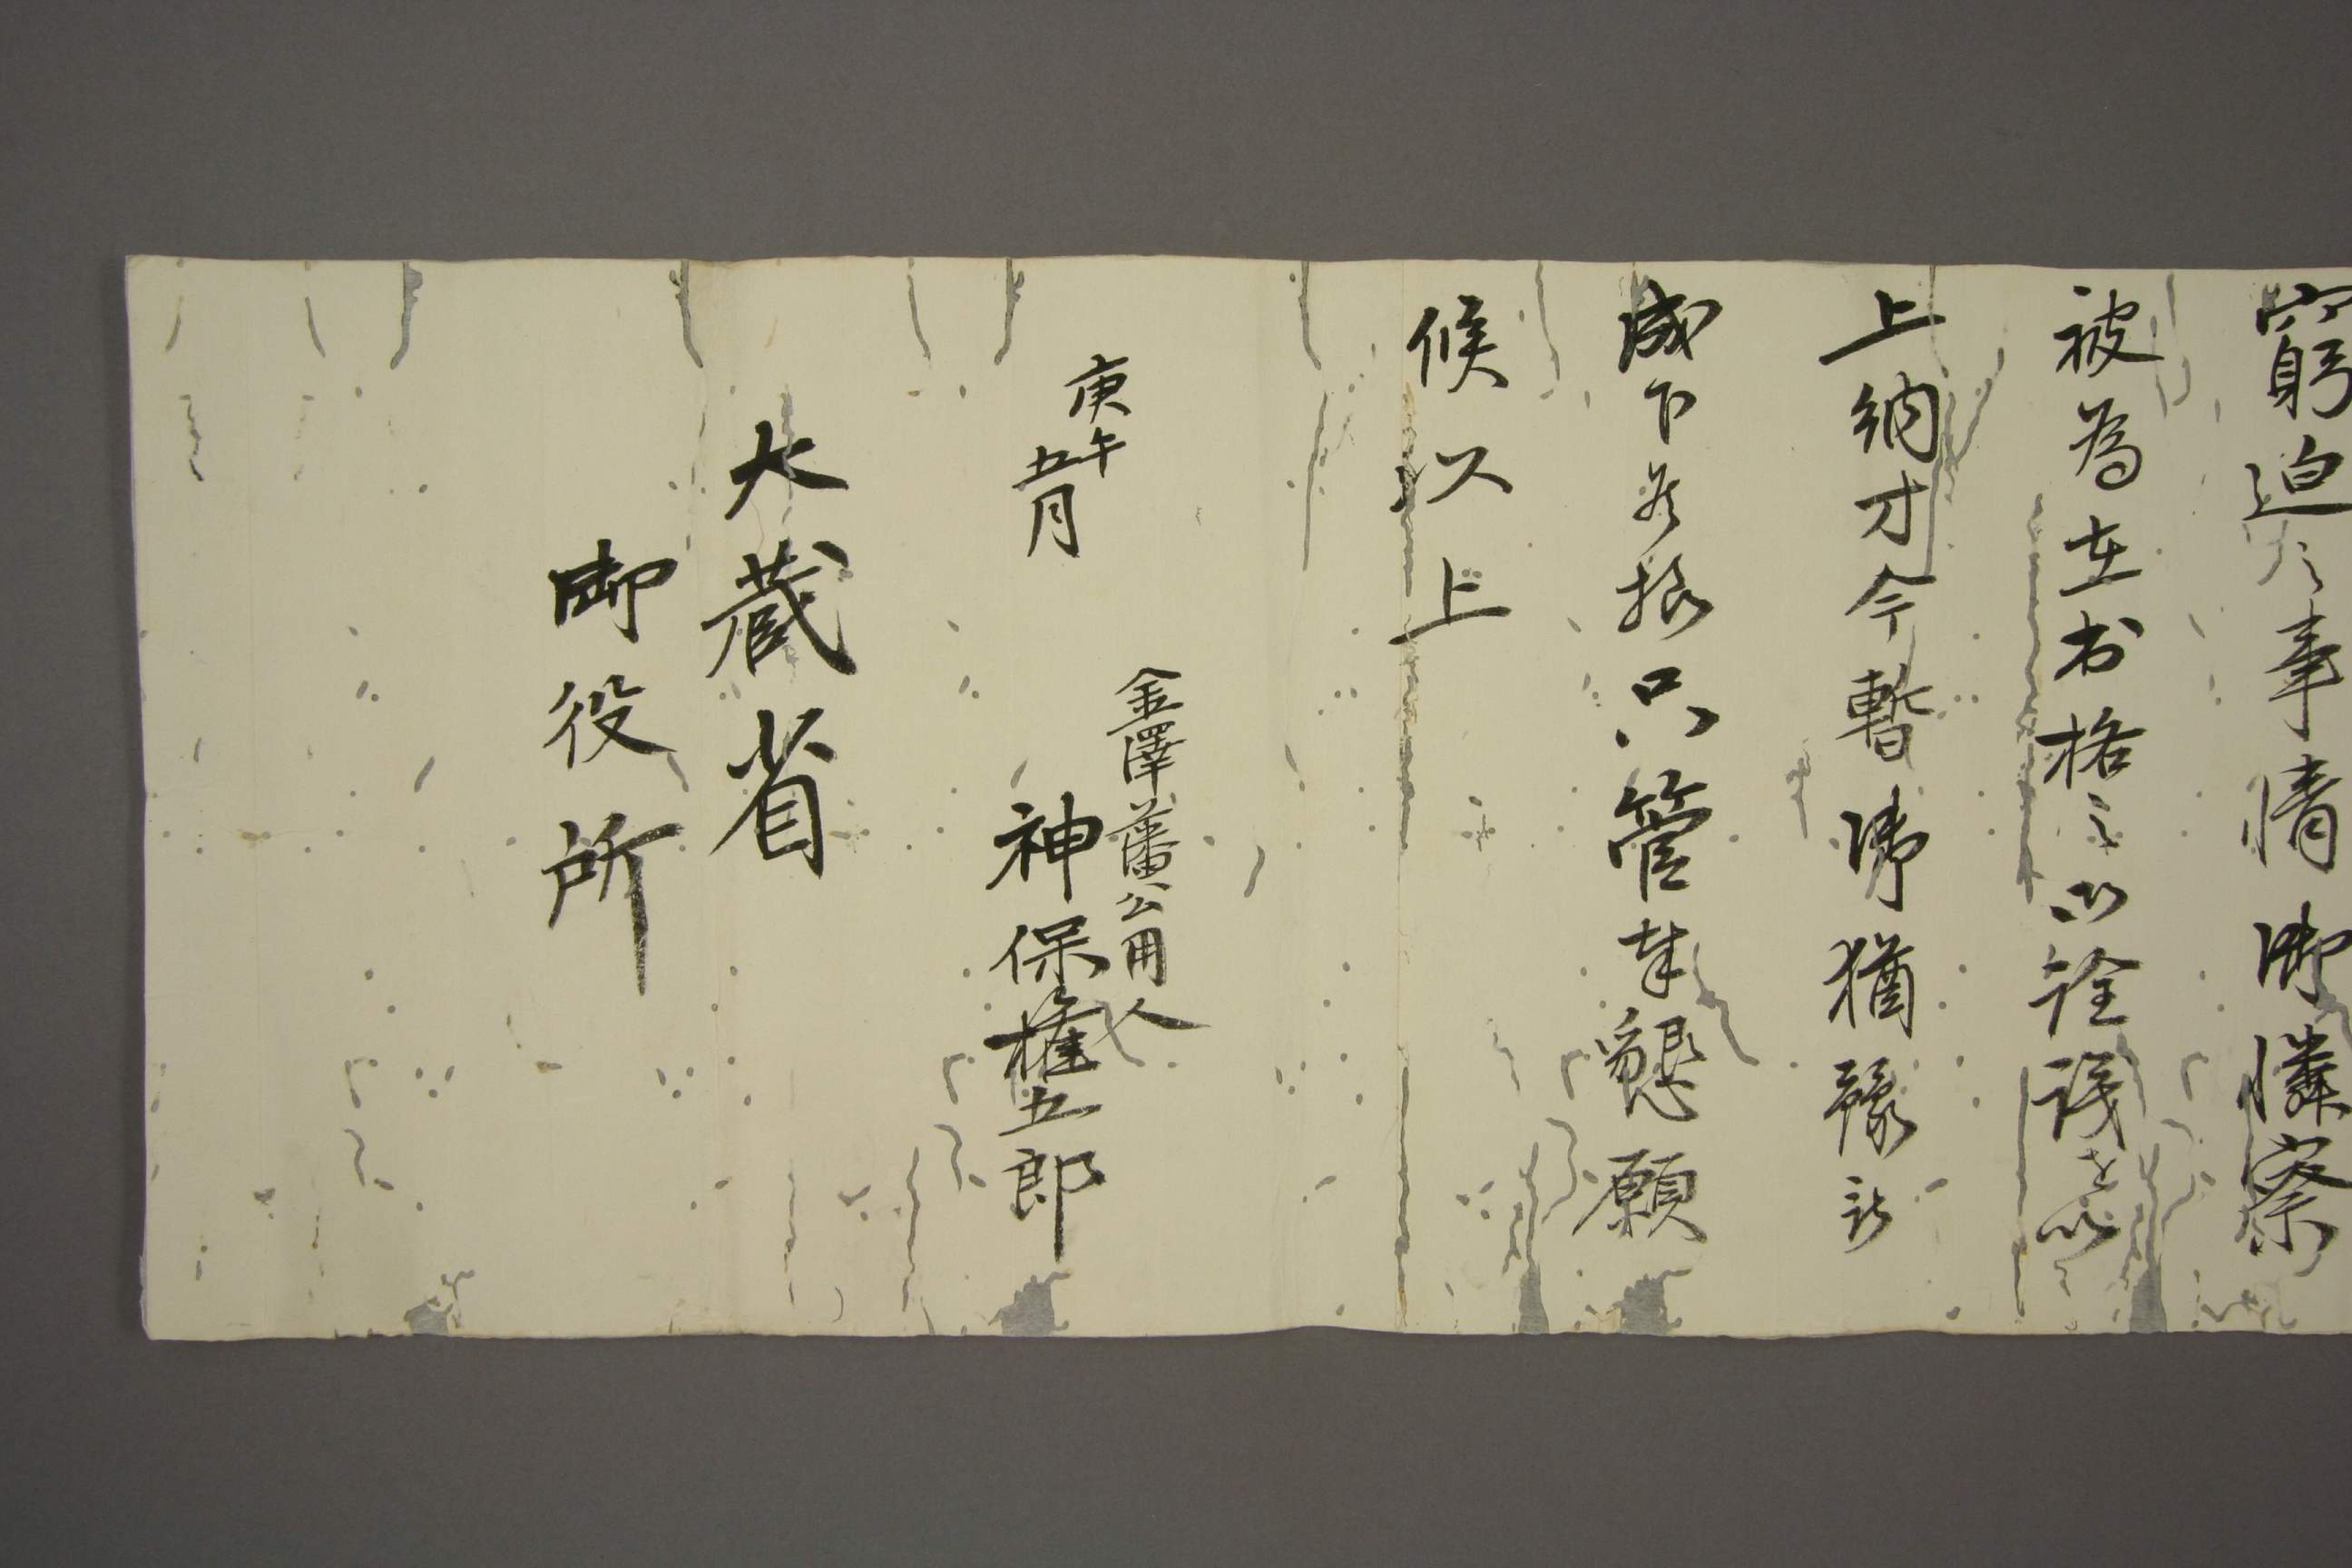 窮迫之事情御憐察
被為在出格之御詮議を以
上納方今暫御猶豫被
成下候様只管奉懇願
候以上
庚午
五月
金澤藩公用人
神保権五郎
大蔵省
御役所